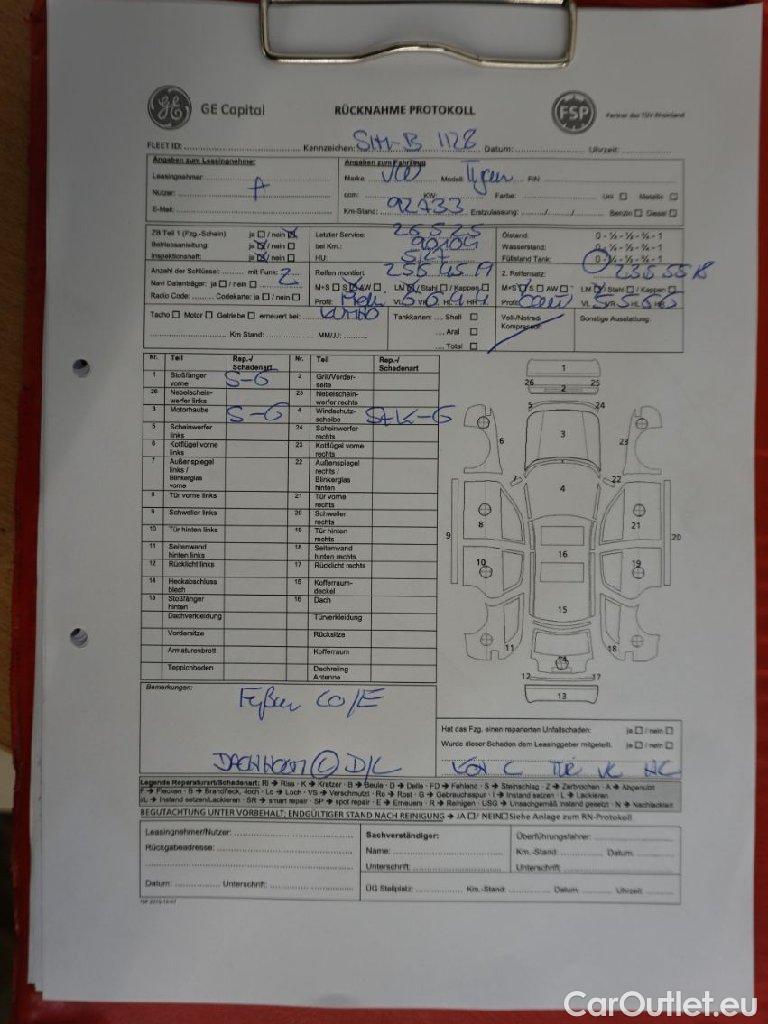 GE Capital RÜCKNAHME PROTOKOLL FSP Partner des TÜV Rheinland
FLEET ID: Kennzeichen: B 1128 Datum: Uhrzeit:
Angaben zum Leasingnehmer: Angaben zum Fahrzeug
Leasingnehmer: Marke: VW Modell: FIN:
Nutzer: ccm: KW: Farbe: Uni □ Metallic □
E-Mail: Km-Stand: 92733 Erstzulassung: Benzin □ Diesel □
ZB Teil 1 (Fzg.-Schein) ja □ / nein □ Letzter Service: Ölstand: 0 - ¼ - ½ - ¾ - 1
Betriebsanleitung: ja □ / nein □ bei Km.: Wasserstand: 0 - ¼ - ½ - ¾ - 1
Inspektionsheft: ja □ / nein □ HU: Füllstand Tank: 0 - ¼ - ½ - ¾ - 1
Anzahl der Schlüssel: mit Funk: 2 Reifen montiert: 255 45 19 2. Reifensatz: 235 55 18
Navi Datenträger: ja □ / nein □ M+S □ S □ AW □ LM □ / Stahl □ / Kappen □ M+S □ S □ AW □ LM □ / Stahl □ / Kappen □
Radio Code: Codekarte: ja □ / nein □ Profil: VL VR HL HR Profil: VL VR HL HR
Tacho □ Motor □ Getriebe □ erneuert bei: Tankkarten: Shell □ Voll-/Notrad Kompressor Sonstige Ausstattung:
Km Stand: MM/JJ: Aral □
Total □
Nr. Teil Rep.-/ Schadenart Nr. Teil Rep.-/ Schadenart
1 Stoßfänger vorne S-G 2 Grill/Vorderseite
26 Nebelscheinwerfer links 25 Nebelscheinwerfer rechts
3 Motorhaube S-G 4 Windschutzscheibe
5 Scheinwerfer links 24 Scheinwerfer rechts
6 Kotflügel vorne links 23 Kotflügel vorne rechts
7 Außenspiegel links / Blinkerglas vorne 22 Außenspiegel rechts / Blinkerglas hinten
8 Tür vorne links 21 Tür vorne rechts
9 Schweller links 20 Schweller rechts
10 Tür hinten links 19 Tür hinten rechts
11 Seitenwand hinten links 18 Seitenwand hinten rechts
12 Rücklicht links 17 Rücklicht rechts
14 Heckabschlussblech 15 Kofferraumdeckel
13 Stoßfänger hinten 16 Dach
Dachverkleidung Türverkleidung
Vordersitze Rücksitze
Armaturenbrett Kofferraum
Teppichboden Dachreling Antenne
1
26 25
2
5 24
3
6 23
7 22
4
8 21
9 20
16
10 19
15
11 18
14
12 17
13
Bemerkungen:
Hat das Fzg. einen reparierten Unfallschaden: ja □ / nein □
Wurde dieser Schaden dem Leasinggeber mitgeteilt: ja □ / nein □
Legende Reparaturart/Schadenart: RI → Riss · K → Kratzer · B → Beule · D → Delle · FD → Fehlend · S → Steinschlag · Z → Zerbrochen · A → Abgenutzt
F → Flecken · B → Brandfleck, -loch · Lo → Loch · VS → Verschmutzt · Ro → Rost · G → Gebrauchsspur · I → Instand setzen · L → Lackieren
IL → Instand setzen/Lackieren · SR → smart repair · SP → spot repair · E → Erneuern · R → Reinigen · USG → Unsachgemäß instand gesetzt · N → Nachlackiert
BEGUTACHTUNG UNTER VORBEHALT; ENDGÜLTIGER STAND NACH REINIGUNG → JA □ / NEIN □ Siehe Anlage zum RN-Protokoll
Leasingnehmer/Nutzer: Sachverständiger: Überführungsfahrer:
Rückgabeadresse: Name: Km.-Stand: Datum:
Unterschrift: Unterschrift:
Datum: Unterschrift: ÜG Stellplatz: Km.-Stand: Datum: Uhrzeit:
CarOutlet.eu